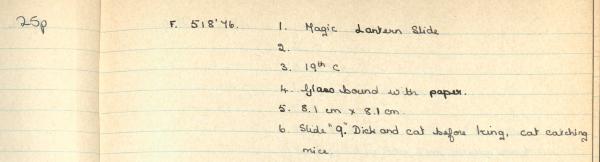 25p
F. 518'76. 1. Magic Lantern Slide
2.
3. 19th C
4. Glass bound with paper.
5. 8.1 cm x 8.1 cm.
6. Slide "9". Dick and cat before king, cat catching
mice.